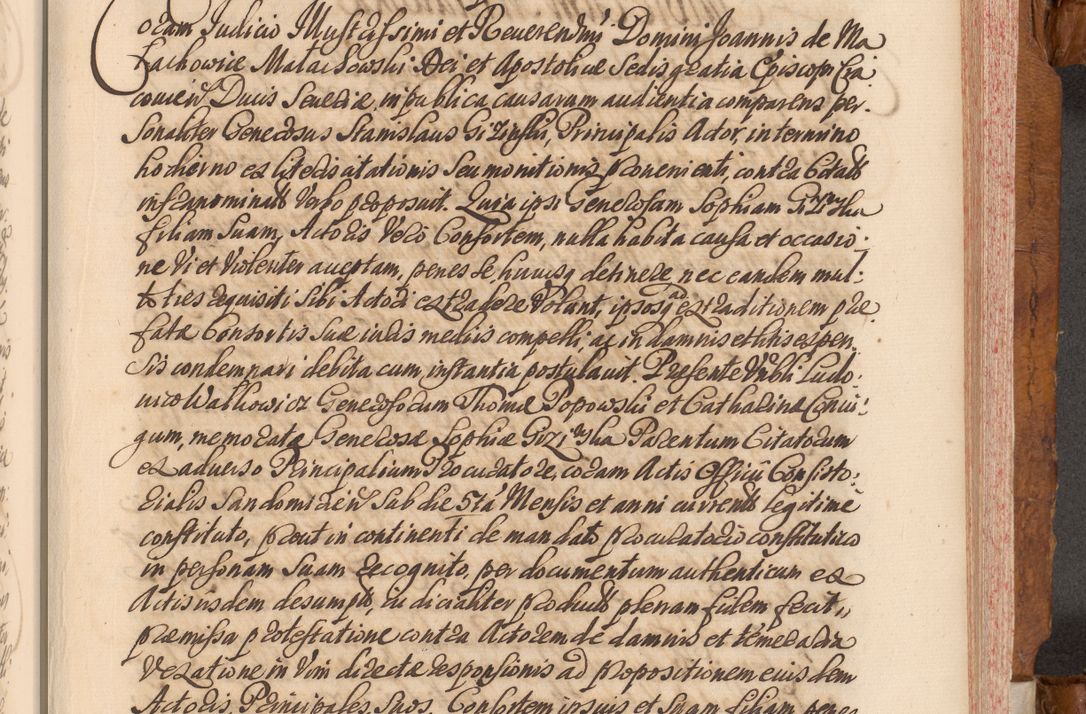 Coram Judicio Illustrissimi et Reverendmi Domini Joannis de Ma
łachowice Małachowski Dei et Apostolicæ Sedis gratia Episcopi Cra
covien Ducis Severiæ, in publica causarum audientia comparens per-
sonaliter Generosus Stanislaus Principalis Actor, in termino
hodierno ex Citatis citationis seu monitionis provenienti, contra Citatos
infranominatos Verbo proposuit. Quia ipsi Generosam Sophiam
filiam suam, Actoris Vero Consortem, nulla habita causa et occasio-
ne Vi et Violenter aueptam, penes se hucusq detinere, nec eandem mul-
toties requisiti sibi Actori extradere Volunt, ipsosq ad extraditionem præ-
fatæ Consortis suæ iuris mediis compelli, ac in damnis et litis expen
sis condemnari debita cum instantia postulavit. Præsente Vnbli Ludo-
vico Walkowicz Generosorum Thomæ Popowski et Catharinæ Coniu-
gum, memoratæ Generosæ Sophiæ Parentum Citatorum
ex adverso Principalium Procuratore, coram Actis Officii Consisto-
rialis Sandomirien sub die 5ta Mensis et anni currentis legitime
constituto, prout in continenti de mandato procuratorio constitutivo
in personam suam recognito, per documentum authenticum ex
Actis iisdem desumpto, iudicialiter productum plenam fidem fecit,
præmissa protestatione contra Actorem de damnis et temeraria
Vexatione in Vim directæ responsionis ad propositionem eiusdem
Actoris, Principales suos, Consortem ipsius et suam filiam penes